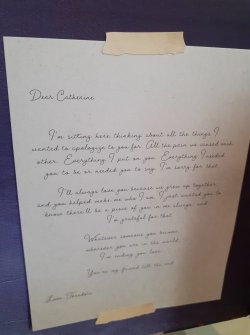 Dear Catherine
I'm sitting here thinking about all the things I
wanted to apologize to you for. All the pain we caused each
other. Everything I put on you. Everything I needed
you to be or needed you to say. I'm sorry for that.
I'll always love you because we grew up together
and you helped make me who I am. I just wanted you to
know there'll be a piece of you in me always, and
I'm grateful for that.
Whatever someone you become,
wherever you are in the world,
I'm sending you love.
You're my friend till the end.
Love, Theodore